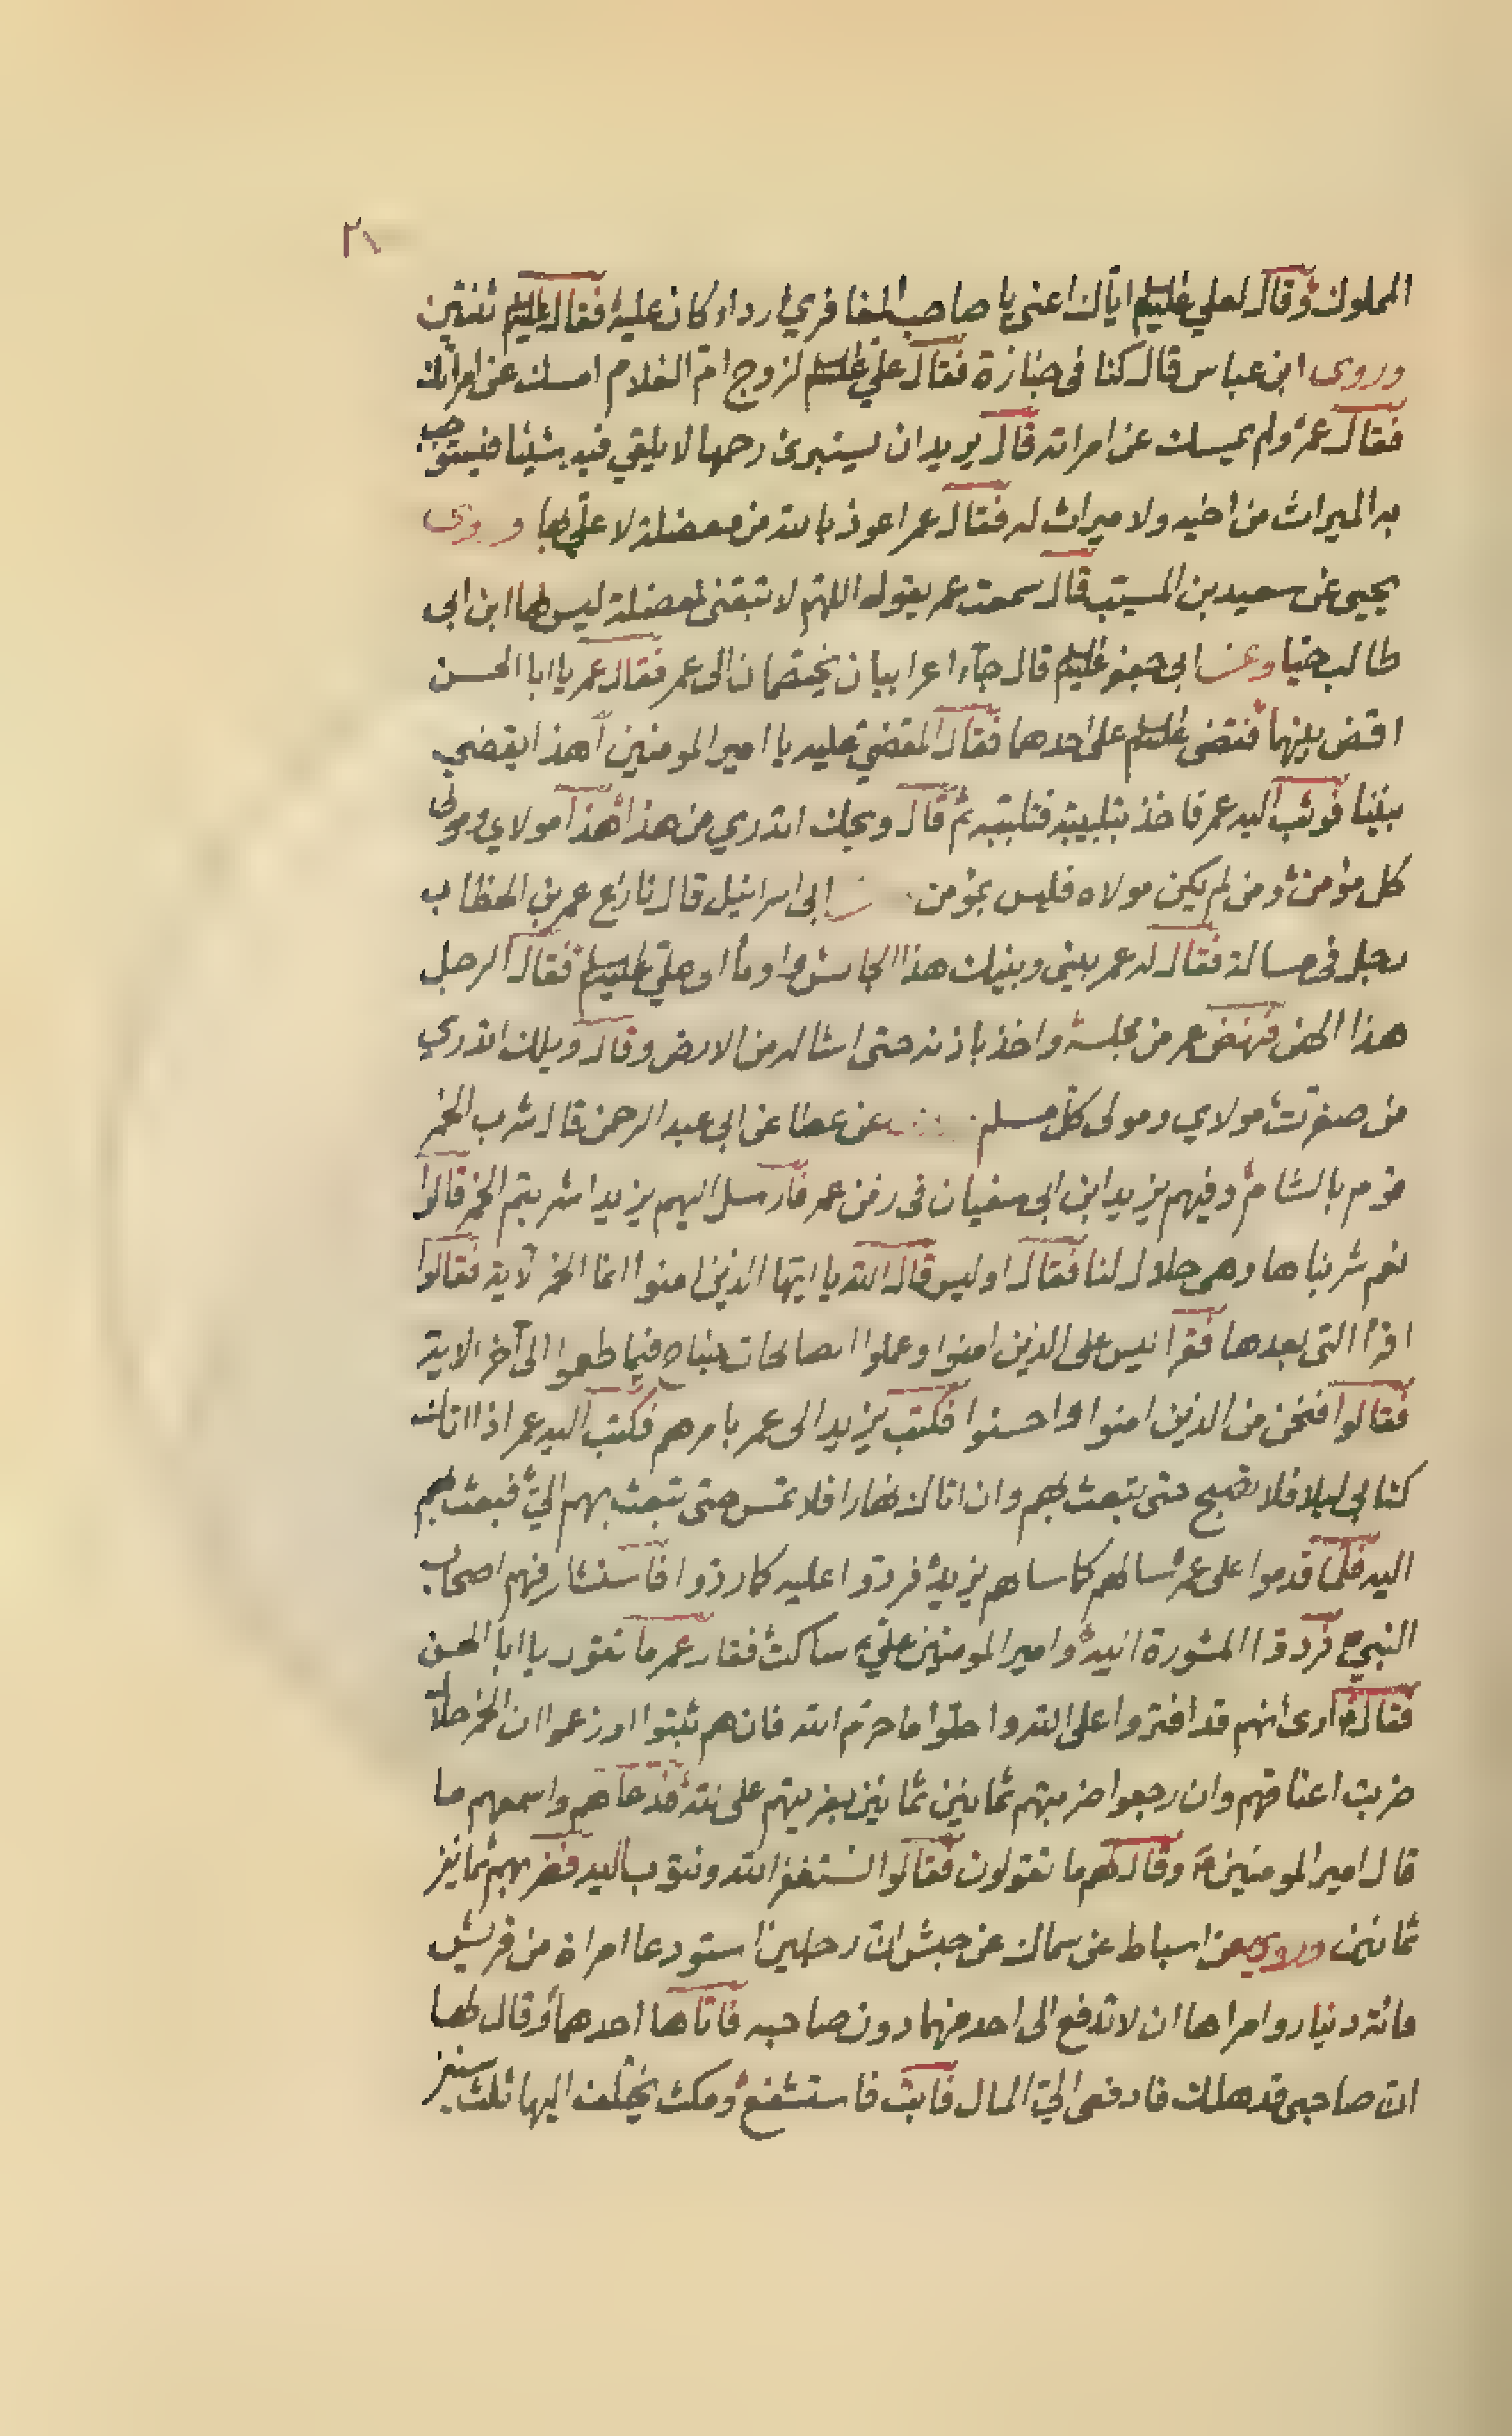 ٢١
المملوك وقال لعلي عليه السلم اياك اعنى يا صاحب المغافري رداء كان عليه فقال عليه السلم ثنتين
وروى ابن عباس قال كنا فى جنازة فقال علي عليه السلم لزوج ام الغلام امسك عن امرأتك
فقال عمر ولم يمسك عن امراته قال يريد ان يستبرئ رحمها لا يلقي فيه شيئا فيستوجب
به الميراث من اخيه ولا ميراث له فقال عمر اعوذ بالله من معضلة لا علي لها وروى
يحيى عن سعيد بن المسيب قال سمعت عمر يقول اللهم لا تبقنى لمعضلة ليس لها ابن ابى
طالب حيا وعن ابى جعفر عليه السلم قال جآء اعرابيان يختصمان الى عمر فقال عمر يا ابا الحسن
اقض بينهما فقضى عليه السلم على احدهما فقال المقضي عليه يا امير المومنين أهذا يقضي
بيننا فوثب اليه عمر فاخذ بتلبيبه فتلببه ثم قال ويحك اتدري من هذا هذا مولاي ومولى
كل مؤمن ومن لم يكن مولاه فليس بمؤمن ابى اسرائيل قال نازع عمر بن الخطاب
رجل فى مسالة فقال له عمر بينى وبينك هذا الجالس واومأ الى علي عليه السلم فقال الرجل
هذا الهن فنهض عمر من مجلسه واخذ باذنه حتى اشاله من الارض وقال ويلك اتدري
من صغرت مولاي ومولى كل مسلم عن عطا عن ابى عبد الرحمن قال شرب الخمر
قوم بالشام وفيهم يزيد ابن ابى سفيان فى زمن عمر فارسل اليهم يزيد اشربتم الخمر قالوا
نعم شربناها وهى حلال لنا فقال اوليس قال الله يا ايها الذين امنوا انما الخمر لآية فقالوا
اقرأ التى بعدها فقرأ ليس على الذين امنوا وعملوا الصالحات جناح فيما طعموا الى آخر الاية
فقالوا فنحن من الذين امنوا واحسنوا فكتب يزيد الى عمر بامرهم فكتب اليه عمر اذا اتاك
كتابى ليلا فلا تصبح حتى تبعث بهم وان اتاك نهارا فلا تمس حتى تبعث بهم الي فبعث بهم
اليه فلما قدموا على عمر سالهم كما سالهم يزيد فردوا عليه كما ردوا فاستشار فيهم اصحاب
النبي ص فردوا المشورة اليه وامير المومنين علي ساكت فقال عمر ما تقول يا ابا الحسن
فقال ارى انهم قد افتروا على الله واحلوا ما حرم الله فان هم ثبتوا وزعموا ان الخمر حلال
ضربت اعناقهم وان رجعوا ضربتهم ثمانين ثمانين بفريتهم على الله فدعاهم واسمعهم ما
قال امير المومنين وقال لهم ما تقولون فقالوا نستغفر الله ونتوب اليه فضربهم ثمانين
ثمانين وروي عن اسباط عن سماك عن حبش ان رجلين استودعا امراة من قريش
مائة دينار وامراها ان لا تدفع الى احد منهما دون صاحبه فاتاها احدهما وقال لها
ان صاحبى قد هلك فادفعى الي المال فابت فاستشفع ومكث يختلف اليها ثلث سنين